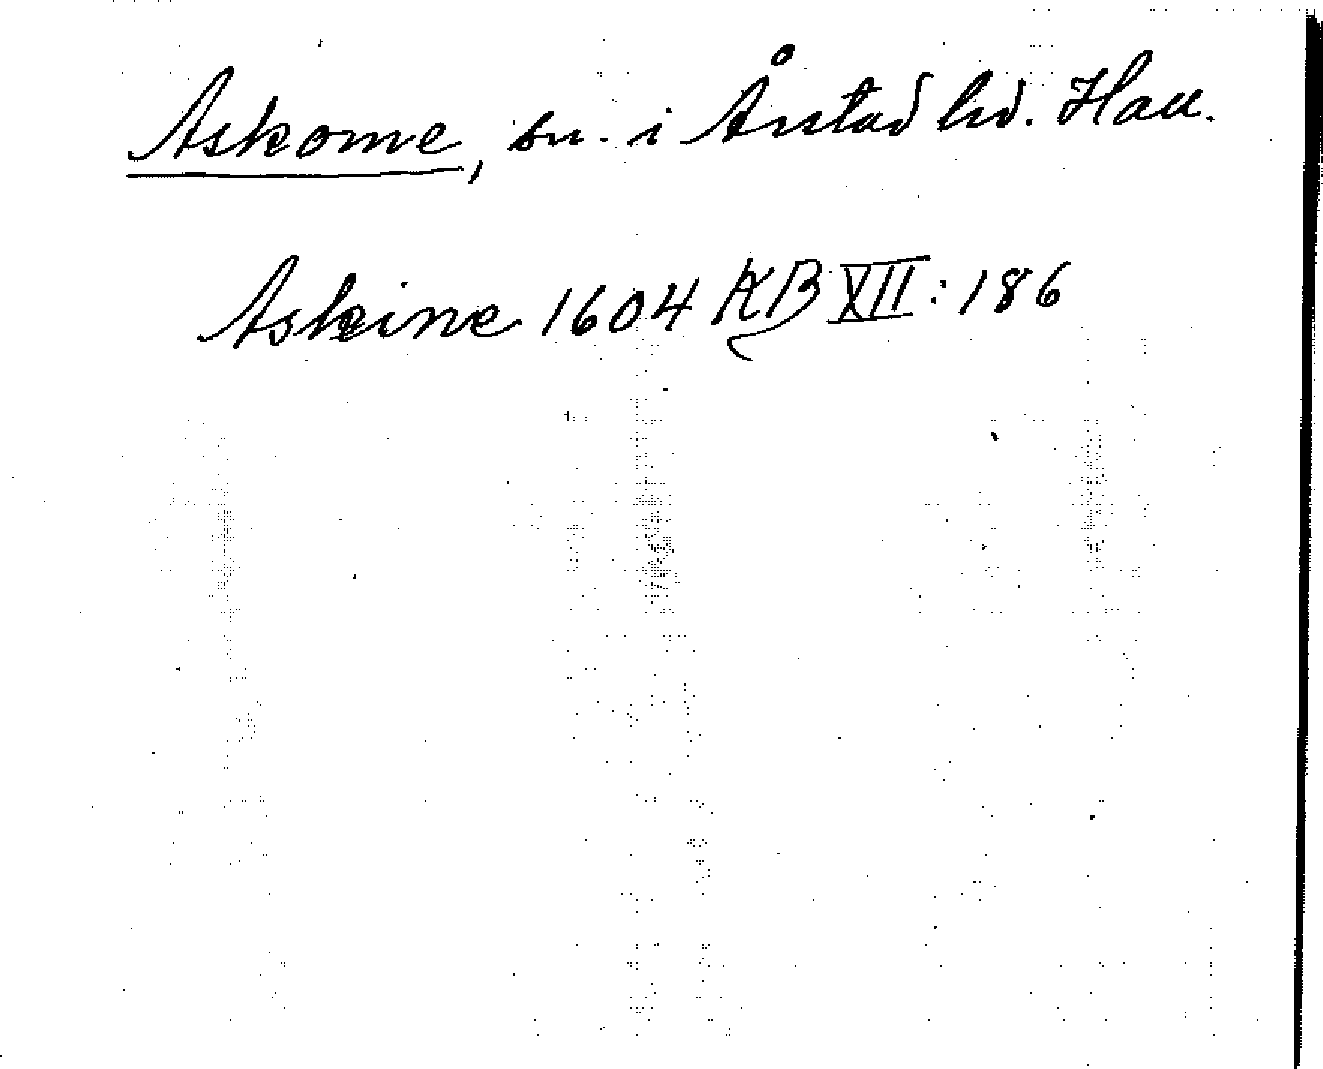 Askome, sn. i Årstad hd. Hall.
Askeine 1604 KB XII: 186